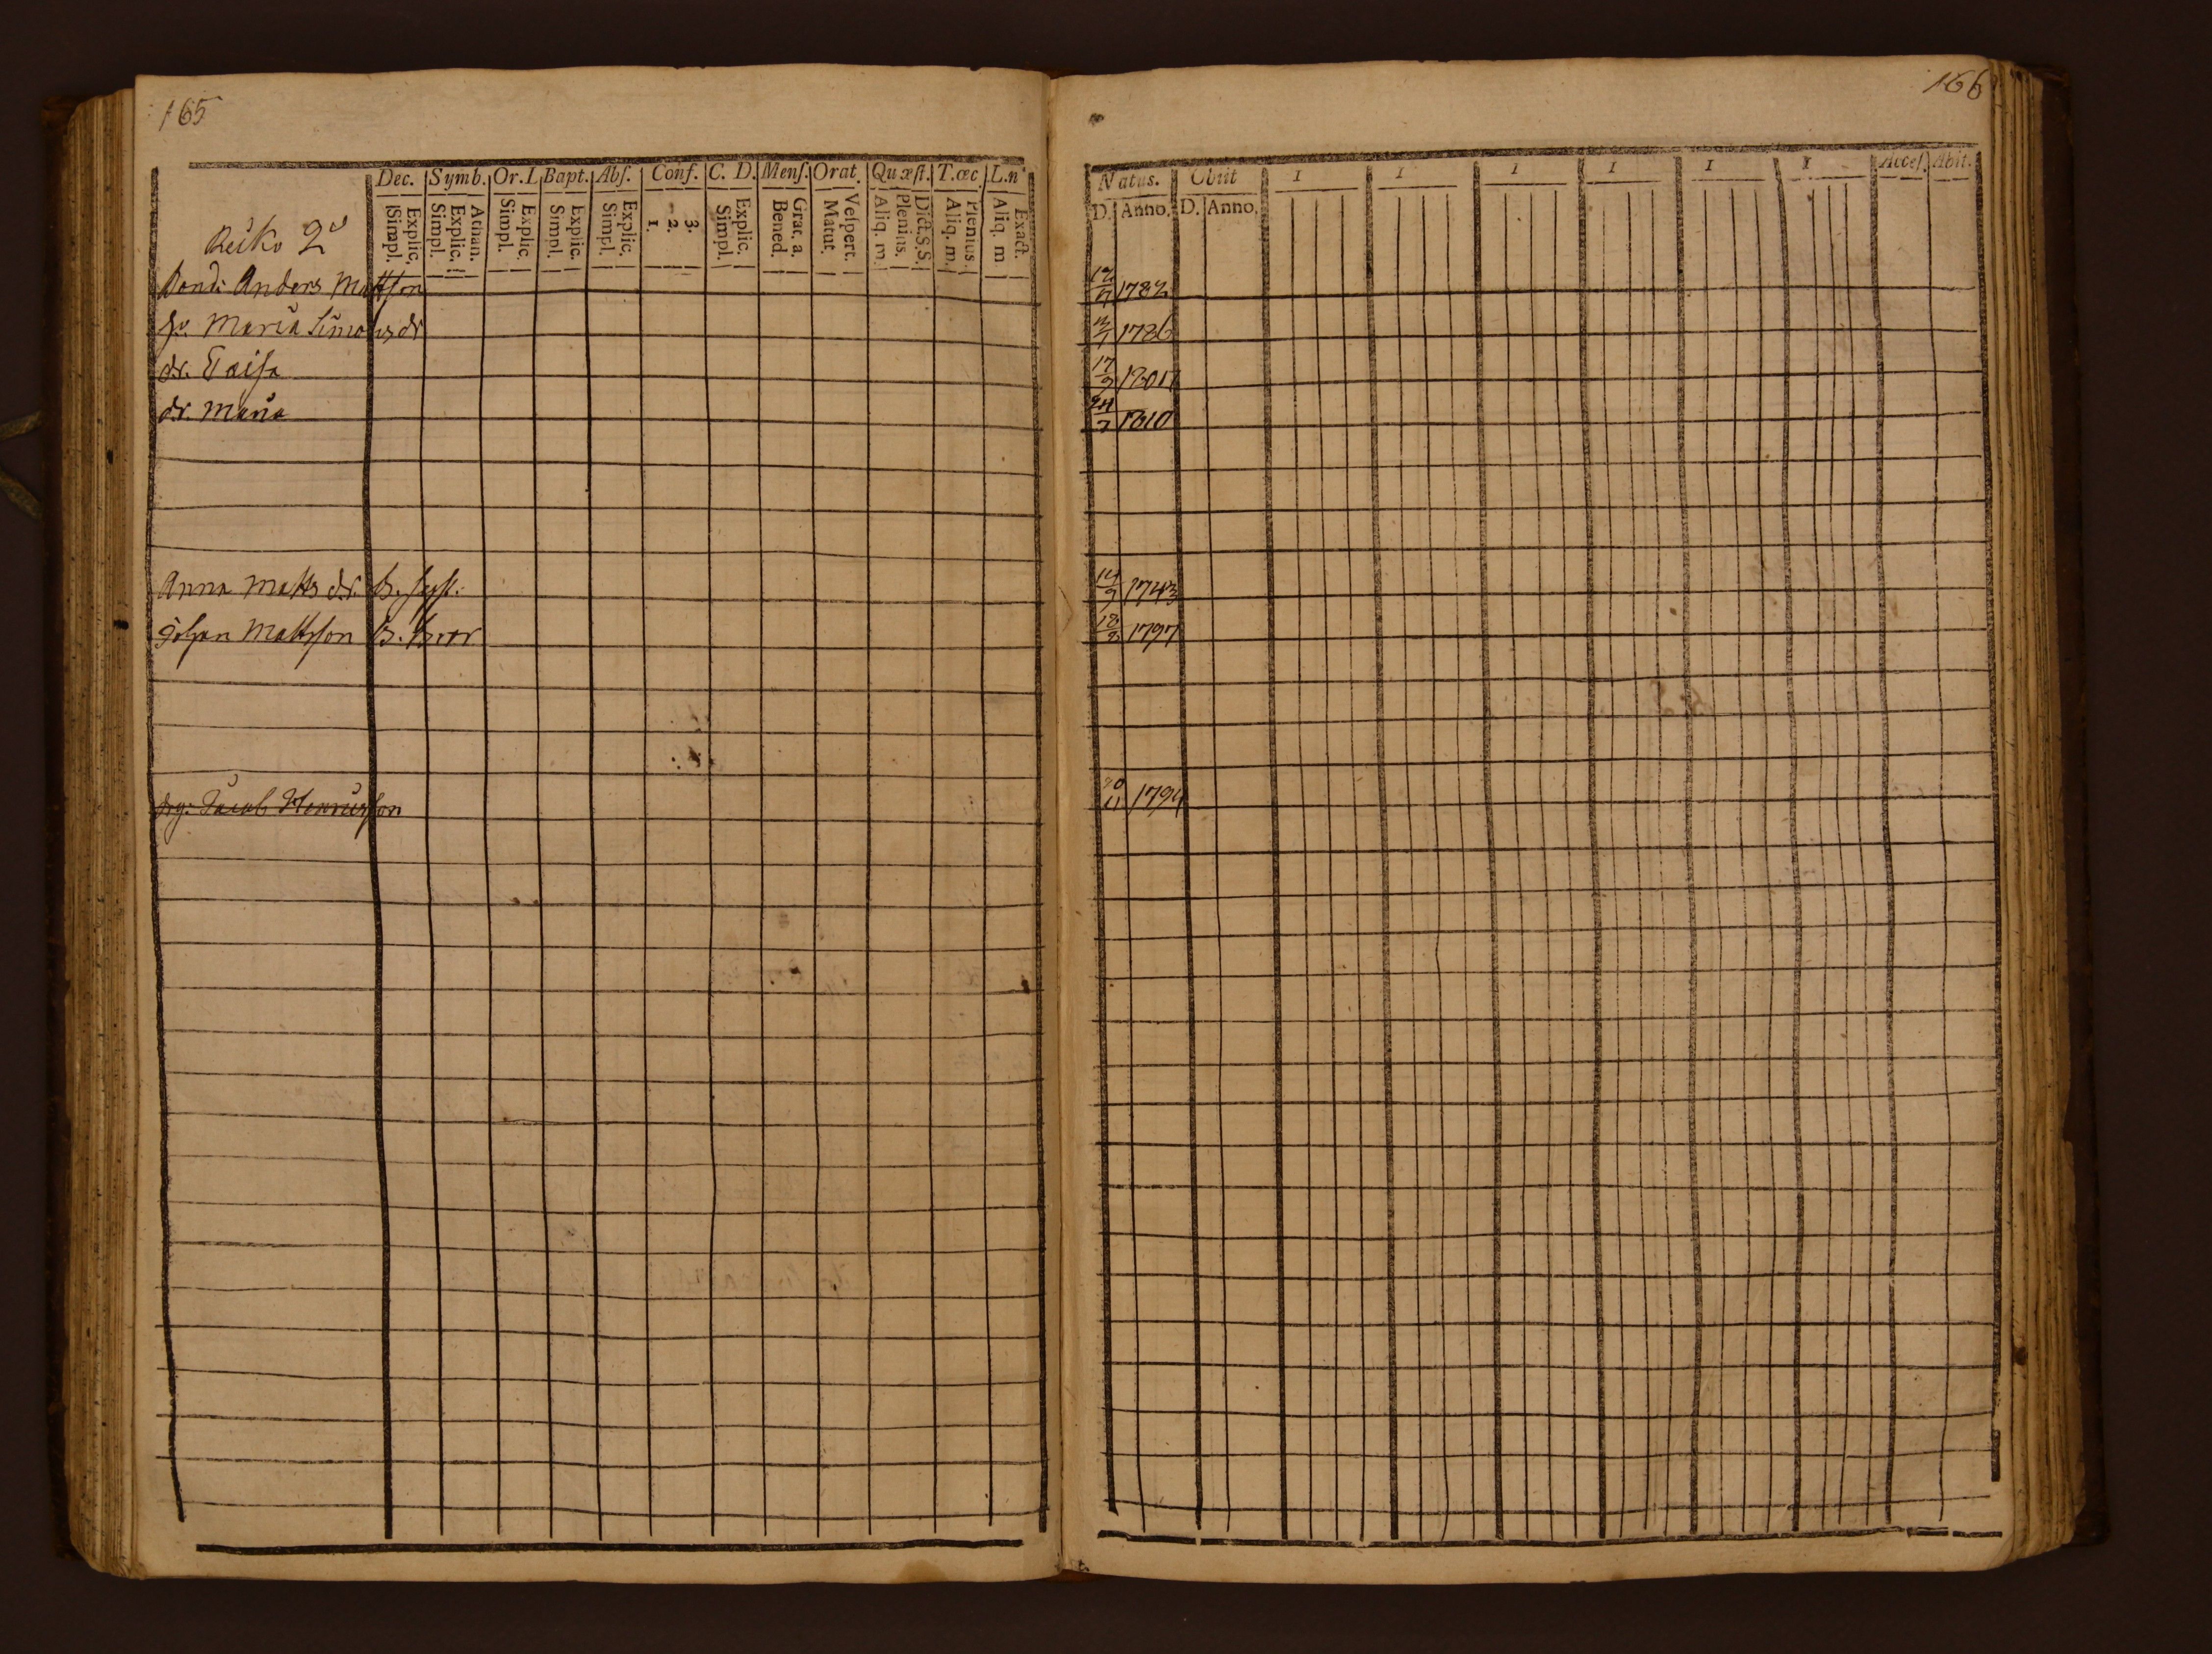 165
Dec. Symb. Or. L Bapt. Abſ. Conf. C. D. Menſ. Orat. Quæſt. T. œc. L. n
Explic. Simpl. Athan. Explic. Simpl. Explic. Simpl. Explic. Simpl. Explic. Simpl. 3. 2. 1. Explic. Simpl. Grat. a. Bened. Veſpert. Matut. Dict. S. S. Plenius. Aliq. m. Plenius. Aliq. m. Exact. Aliq. m
2
Bond: Anders Mattſon
hu. Maria Simonsdr
dr. Caisa
dr. Maria
Anna Matts dr. B. Syst.
Johan Mattsson B. Bror
drg: Jacob Henricsson
166
Natus. Obiit I I I I I I Acceſ. Abit.
D. Anno. D. Anno.
1782
1786
17/9
24/7 1810
14/9 1743
18/2 1797
1794